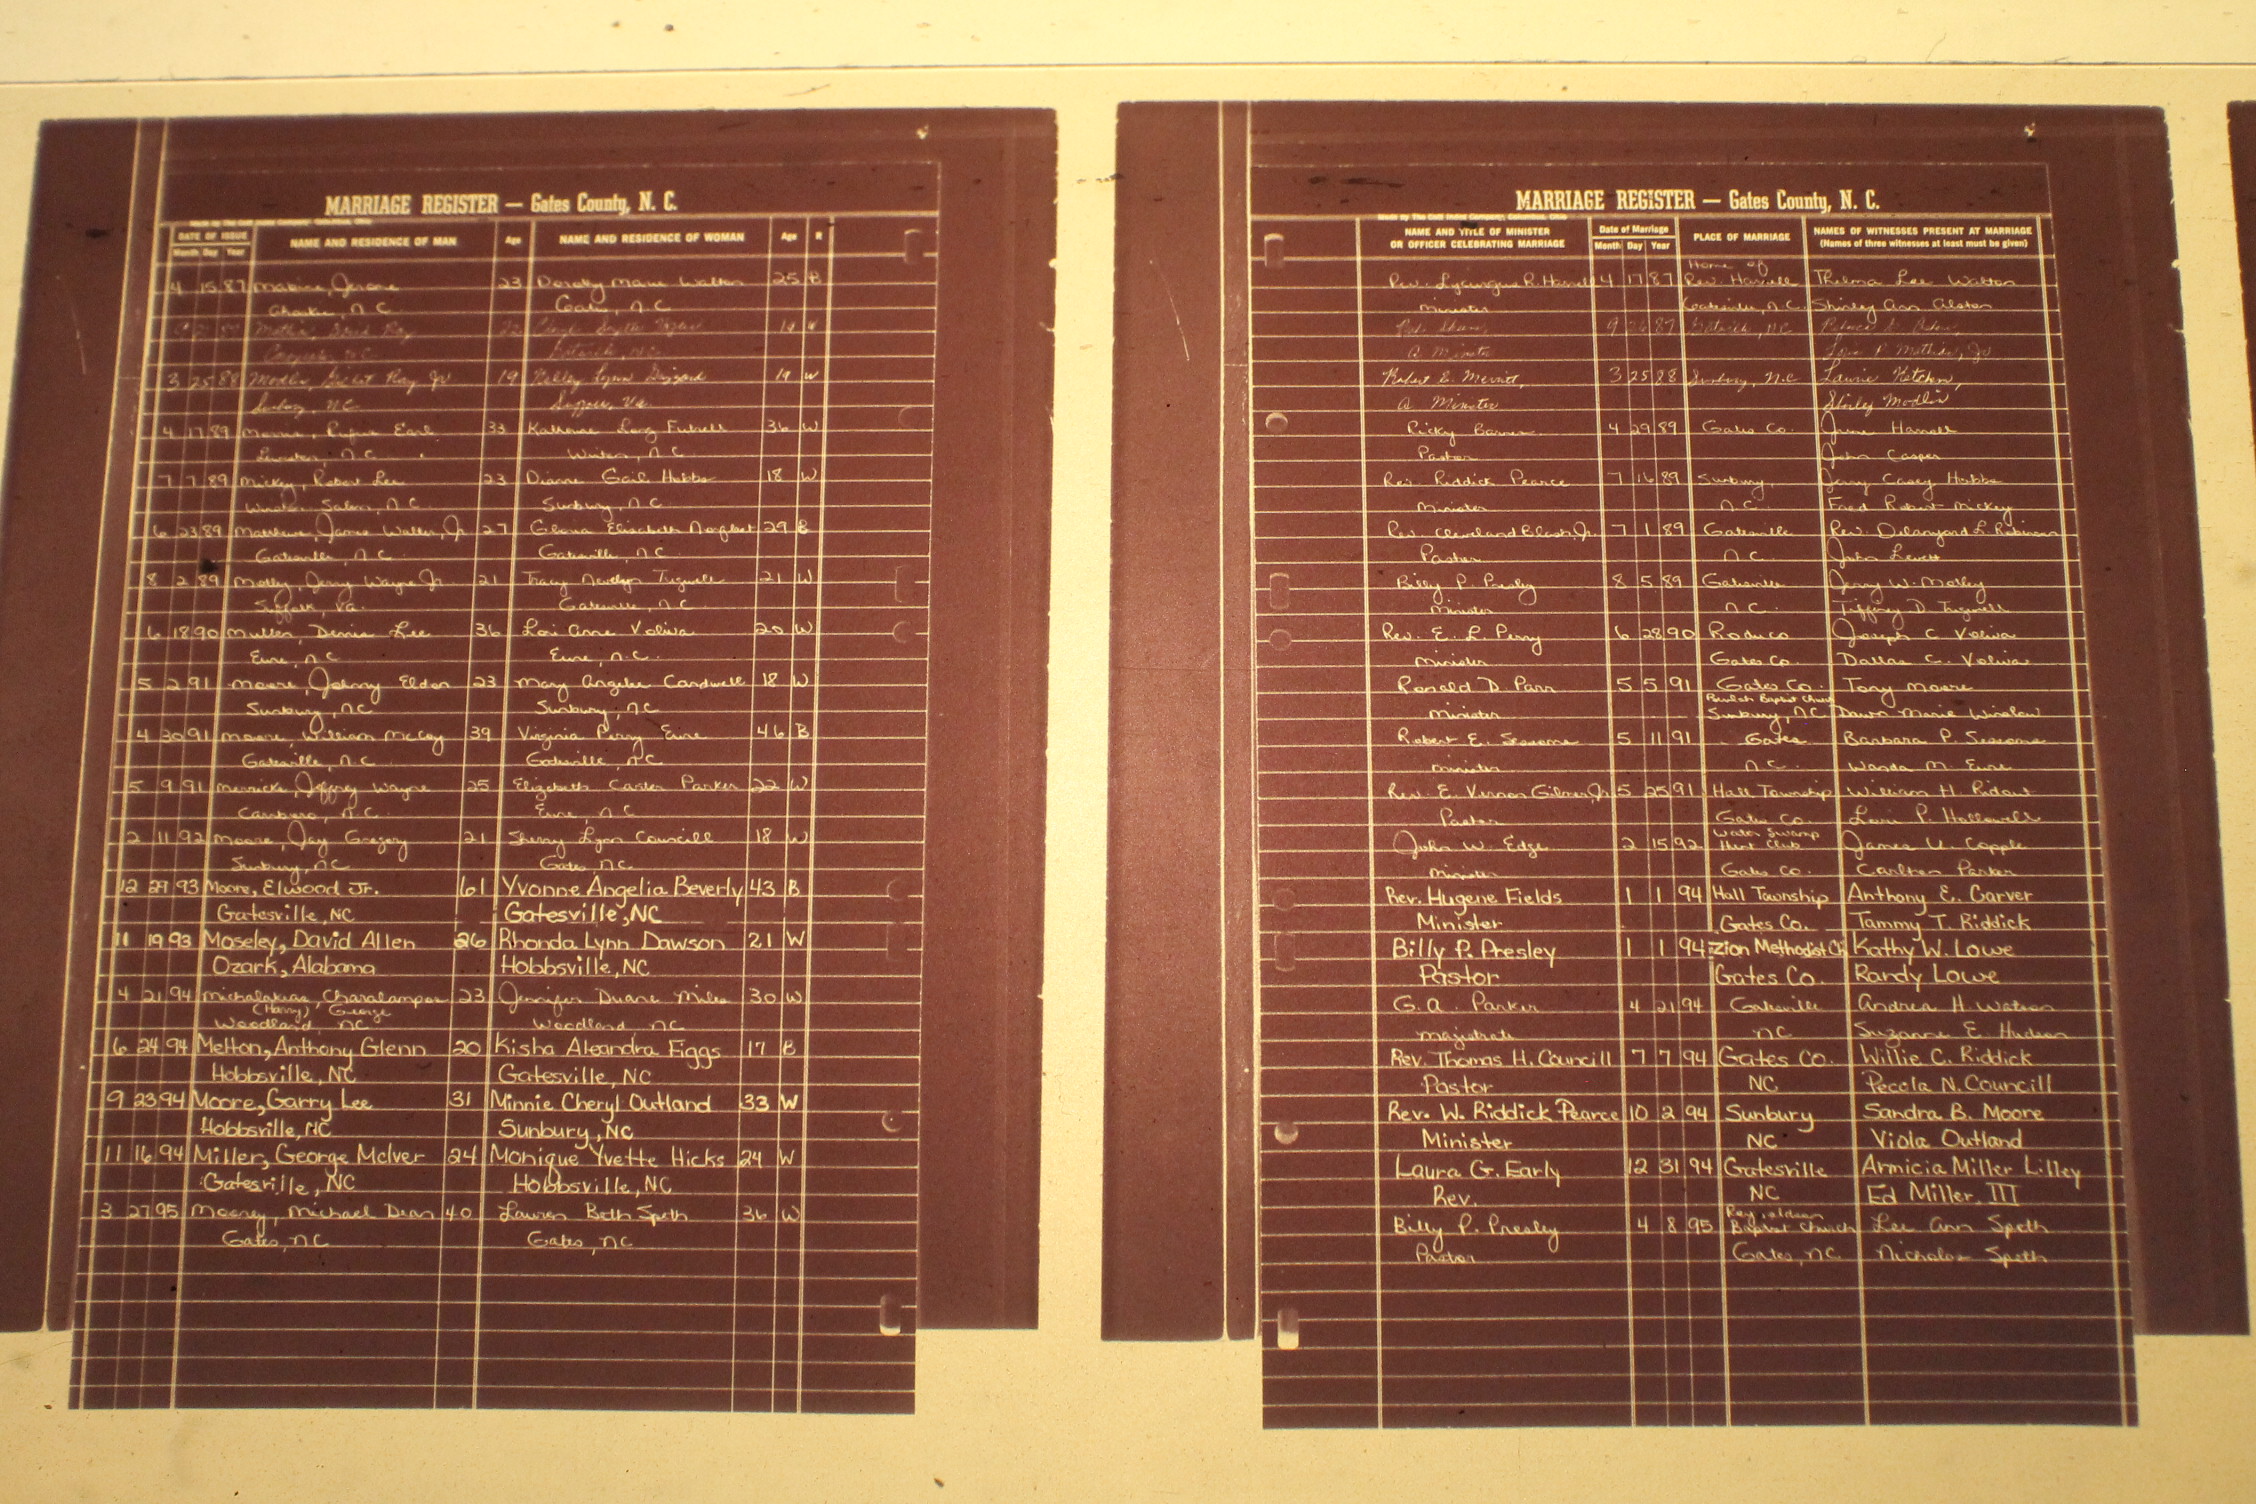 MARRIAGE REGISTER — Gates County, N. C.
DATE OF ISSUE
NAME AND RESIDENCE OF MAN Age NAME AND RESIDENCE OF WOMAN Age R
Month Day Year
4 15 87 Jerome 23 Dorothy Marie Walton 25 B
N.C. Gates, N.C.
3 25 88 Modlin, Ray Jr 19 Kelley Lynn 19 W
Sunbury, N.C.
4 17 89 Rufus Earl 33 Katherine Long Futrell 36 W
N.C. Winton, N.C.
7 7 89 Mickey, Robert Lee 23 Dianne Gail Hobbs 18 W
Winston Salem, N.C. Sunbury, N.C.
6 23 89 Matthews, James Walter, Jr. 27 Gloria Elizabeth Norfleet 29 B
Gatesville, N.C. Gatesville, N.C.
8 2 89 Jerry Wayne Jr 21 Tracy Tugwell 21 W
Suffolk, Va. Gatesville, N.C.
6 18 90 Mullen, Dennis Lee 36 Lori Anne Voliva 20 W
Eure, N.C. Eure, N.C.
5 2 91 Moore, Johnny Eldon 23 Mary Angelia Cardwell 18 W
Sunbury, NC Sunbury, NC
4 30 91 Moore, William McCoy 39 Virginia Perry Eure 46 B
Gatesville, N.C. Gatesville, N.C.
5 9 91 Merricks, Jeffrey Wayne 25 Elizabeth Carter Parker 22 W
Carrboro, N.C. Eure, N.C.
2 11 92 Moore, Jay Gregory 21 Sherry Lynn Councill 18 W
Sunbury, NC Gates, N.C.
12 29 93 Moore, Elwood Jr. 61 Yvonne Angelia Beverly 43 B
Gatesville, NC Gatesville, NC
11 19 93 Moseley, David Allen 26 Rhonda Lynn Dawson 21 W
Ozark, Alabama Hobbsville, NC
4 21 94 Michalakias, Charalampos 23 Jennifer Duane Miles 30 W
(Harry) George
Woodland, NC Woodland, NC
6 24 94 Melton, Anthony Glenn 20 Kisha Aleandra Figgs 17 B
Hobbsville, NC Gatesville, NC
9 23 94 Moore, Garry Lee 31 Minnie Cheryl Outland 33 W
Hobbsville, NC Sunbury, NC
11 16 94 Miller, George McIver 24 Monique Yvette Hicks 24 W
Gatesville, NC Hobbsville, NC
3 27 95 Mooney, Michael Dean 40 Lauren Beth Speth 36 W
Gates, NC Gates, NC
MARRIAGE REGISTER — Gates County, N. C.
NAME AND TITLE OF MINISTER Date of Marriage PLACE OF MARRIAGE NAMES OF WITNESSES PRESENT AT MARRIAGE
OR OFFICER CELEBRATING MARRIAGE Month Day Year (Names of three witnesses at least must be given)
Home of
Rev. Lycurgus R. Harrell 4 17 87 Rev. Harrell Thelma Lee Walton
Minister Gatesville, N.C. Shirley Ann Alston
9 26 87
A Minister
Robert E. Merritt, 3 25 88 Sunbury, N.C. Laurie Ketchem,
A Minister Shirley Modlin
Ricky Barnes 4 29 89 Gates Co. June Harrell
Pastor John Casper
Rev. Riddick Pearce 7 16 89 Sunbury, Jerry Casey Hobbs
Minister N.C. Fred Robert Mickey
Rev. Cleveland Blash, Jr. 7 1 89 Gatesville Rev. L. Robinson
Pastor N.C. John
Billy P. Presley 8 5 89 Gatesville Jerry W.
Minister N.C. Tiffney D. Tugwell
Rev. E. L. Perry 6 28 90 Roduco Joseph C. Voliva
Minister Gates Co. Dallas C. Voliva
Ronald D. Parr 5 5 91 Gates Co. Tony Moore
Beulah Baptist Church
Minister Sunbury, NC Dawn Marie Winslow
Robert E. Sessoms 5 11 91 Gates Barbara P. Sessoms
Minister N.C. Wanda M. Eure
Rev. E. Vernon Gilmer, Jr 5 25 91 Hall Township William H. Ridout
Pastor Gates Co. Lori P. Hollowell
Water Swamp
John W. Edge 2 15 92 Hunt Club James U. Copple
Minister Gates Co. Carlton Parker
Rev. Hugene Fields 1 1 94 Hall Township Anthony E. Carver
Minister Gates Co. Tammy T. Riddick
Billy P. Presley 1 1 94 Zion Methodist Ch Kathy W. Lowe
Pastor Gates Co. Randy Lowe
G. A. Parker 4 21 94 Gatesville Andrea H. Watson
Magistrate NC Suzanne E. Hudson
Rev. Thomas H. Councill 7 7 94 Gates Co. Willie C. Riddick
Pastor NC Pecola N. Councill
Rev. W. Riddick Pearce 10 2 94 Sunbury Sandra B. Moore
Minister NC Viola Outland
Laura G. Early 12 31 94 Gatesville Armicia Miller Lilley
Rev. NC Ed Miller, III
Reynoldson
Billy P. Presley 4 8 95 Baptist Church Lee Ann Speth
Pastor Gates, NC Nicholas Speth